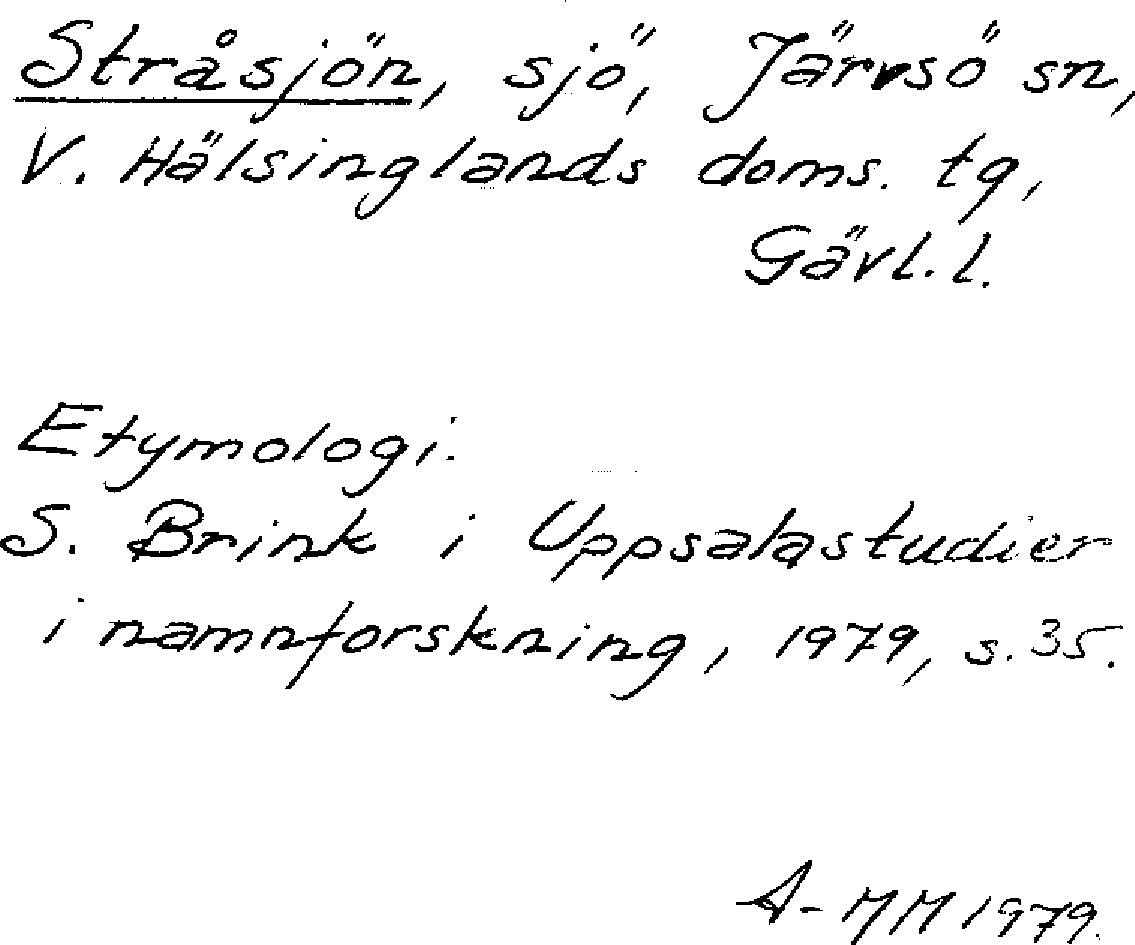 Stråsjön, sjö, Järvsö sn,
V. Hälsinglands doms. tg,
Gävl. l.
Etymologi.
S. Brink i Uppsalastudier
i namnforskning, 1979, s. 35.
A-MM 1979.